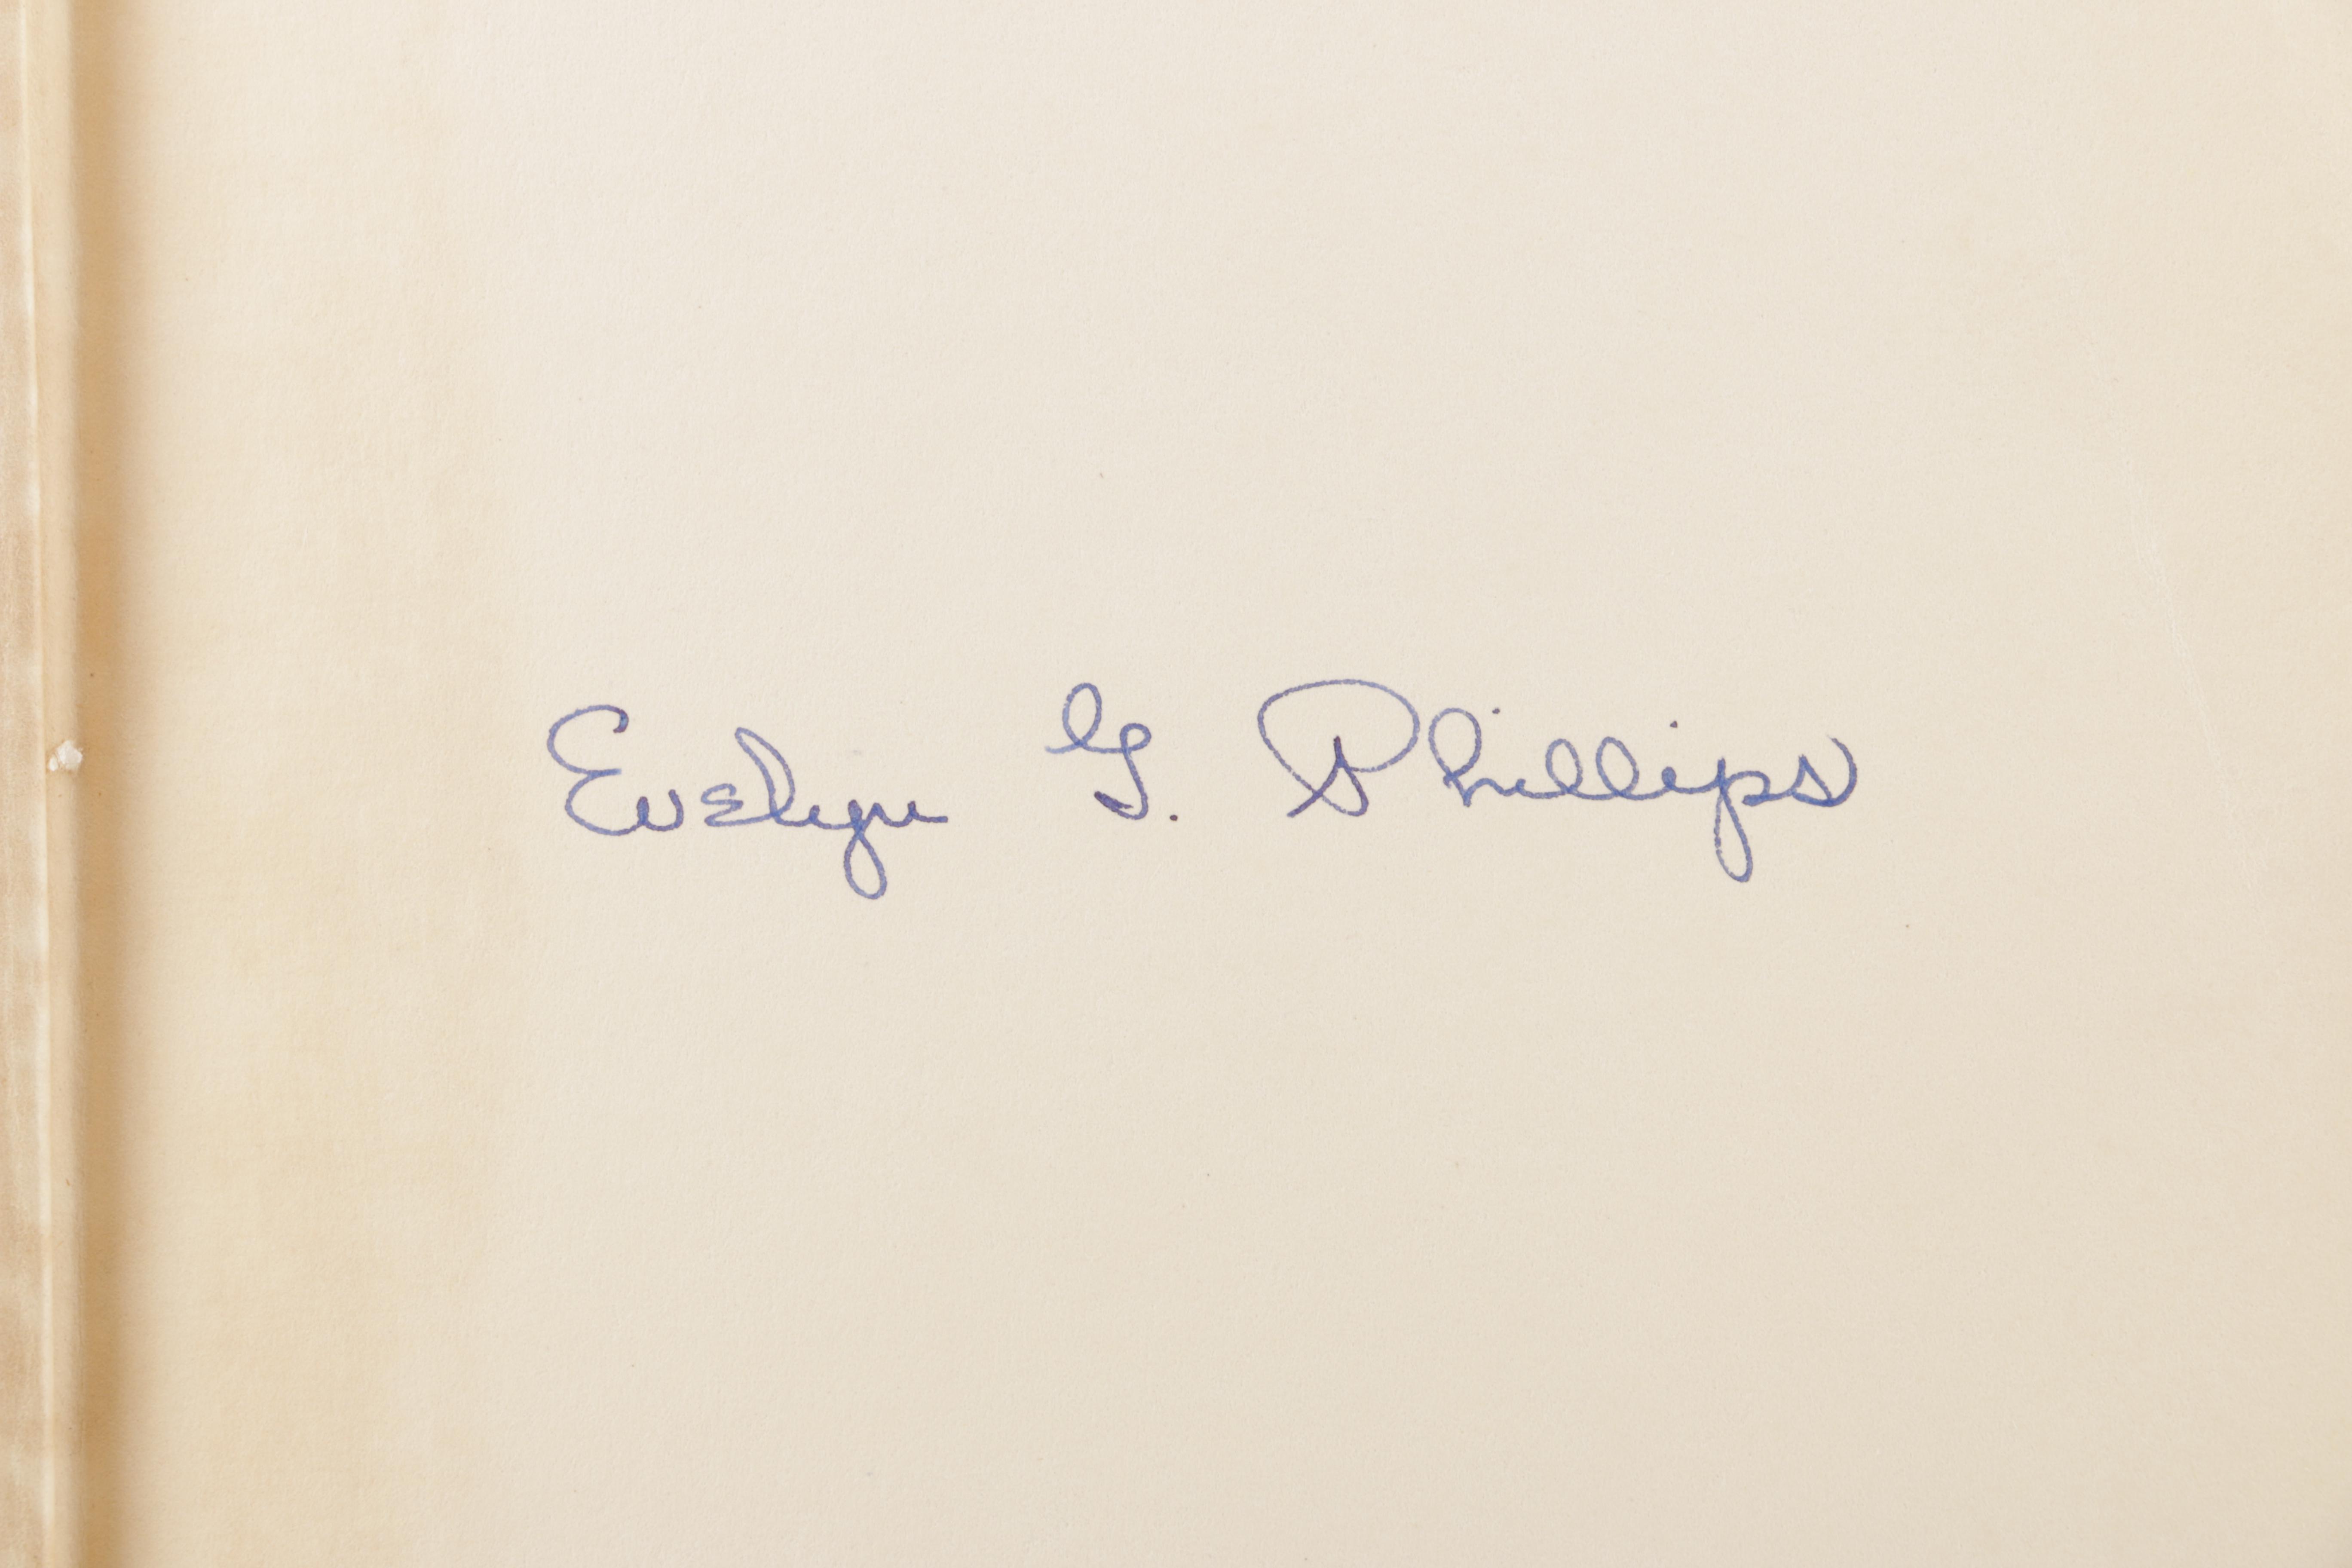 Evelyn G. Phillips